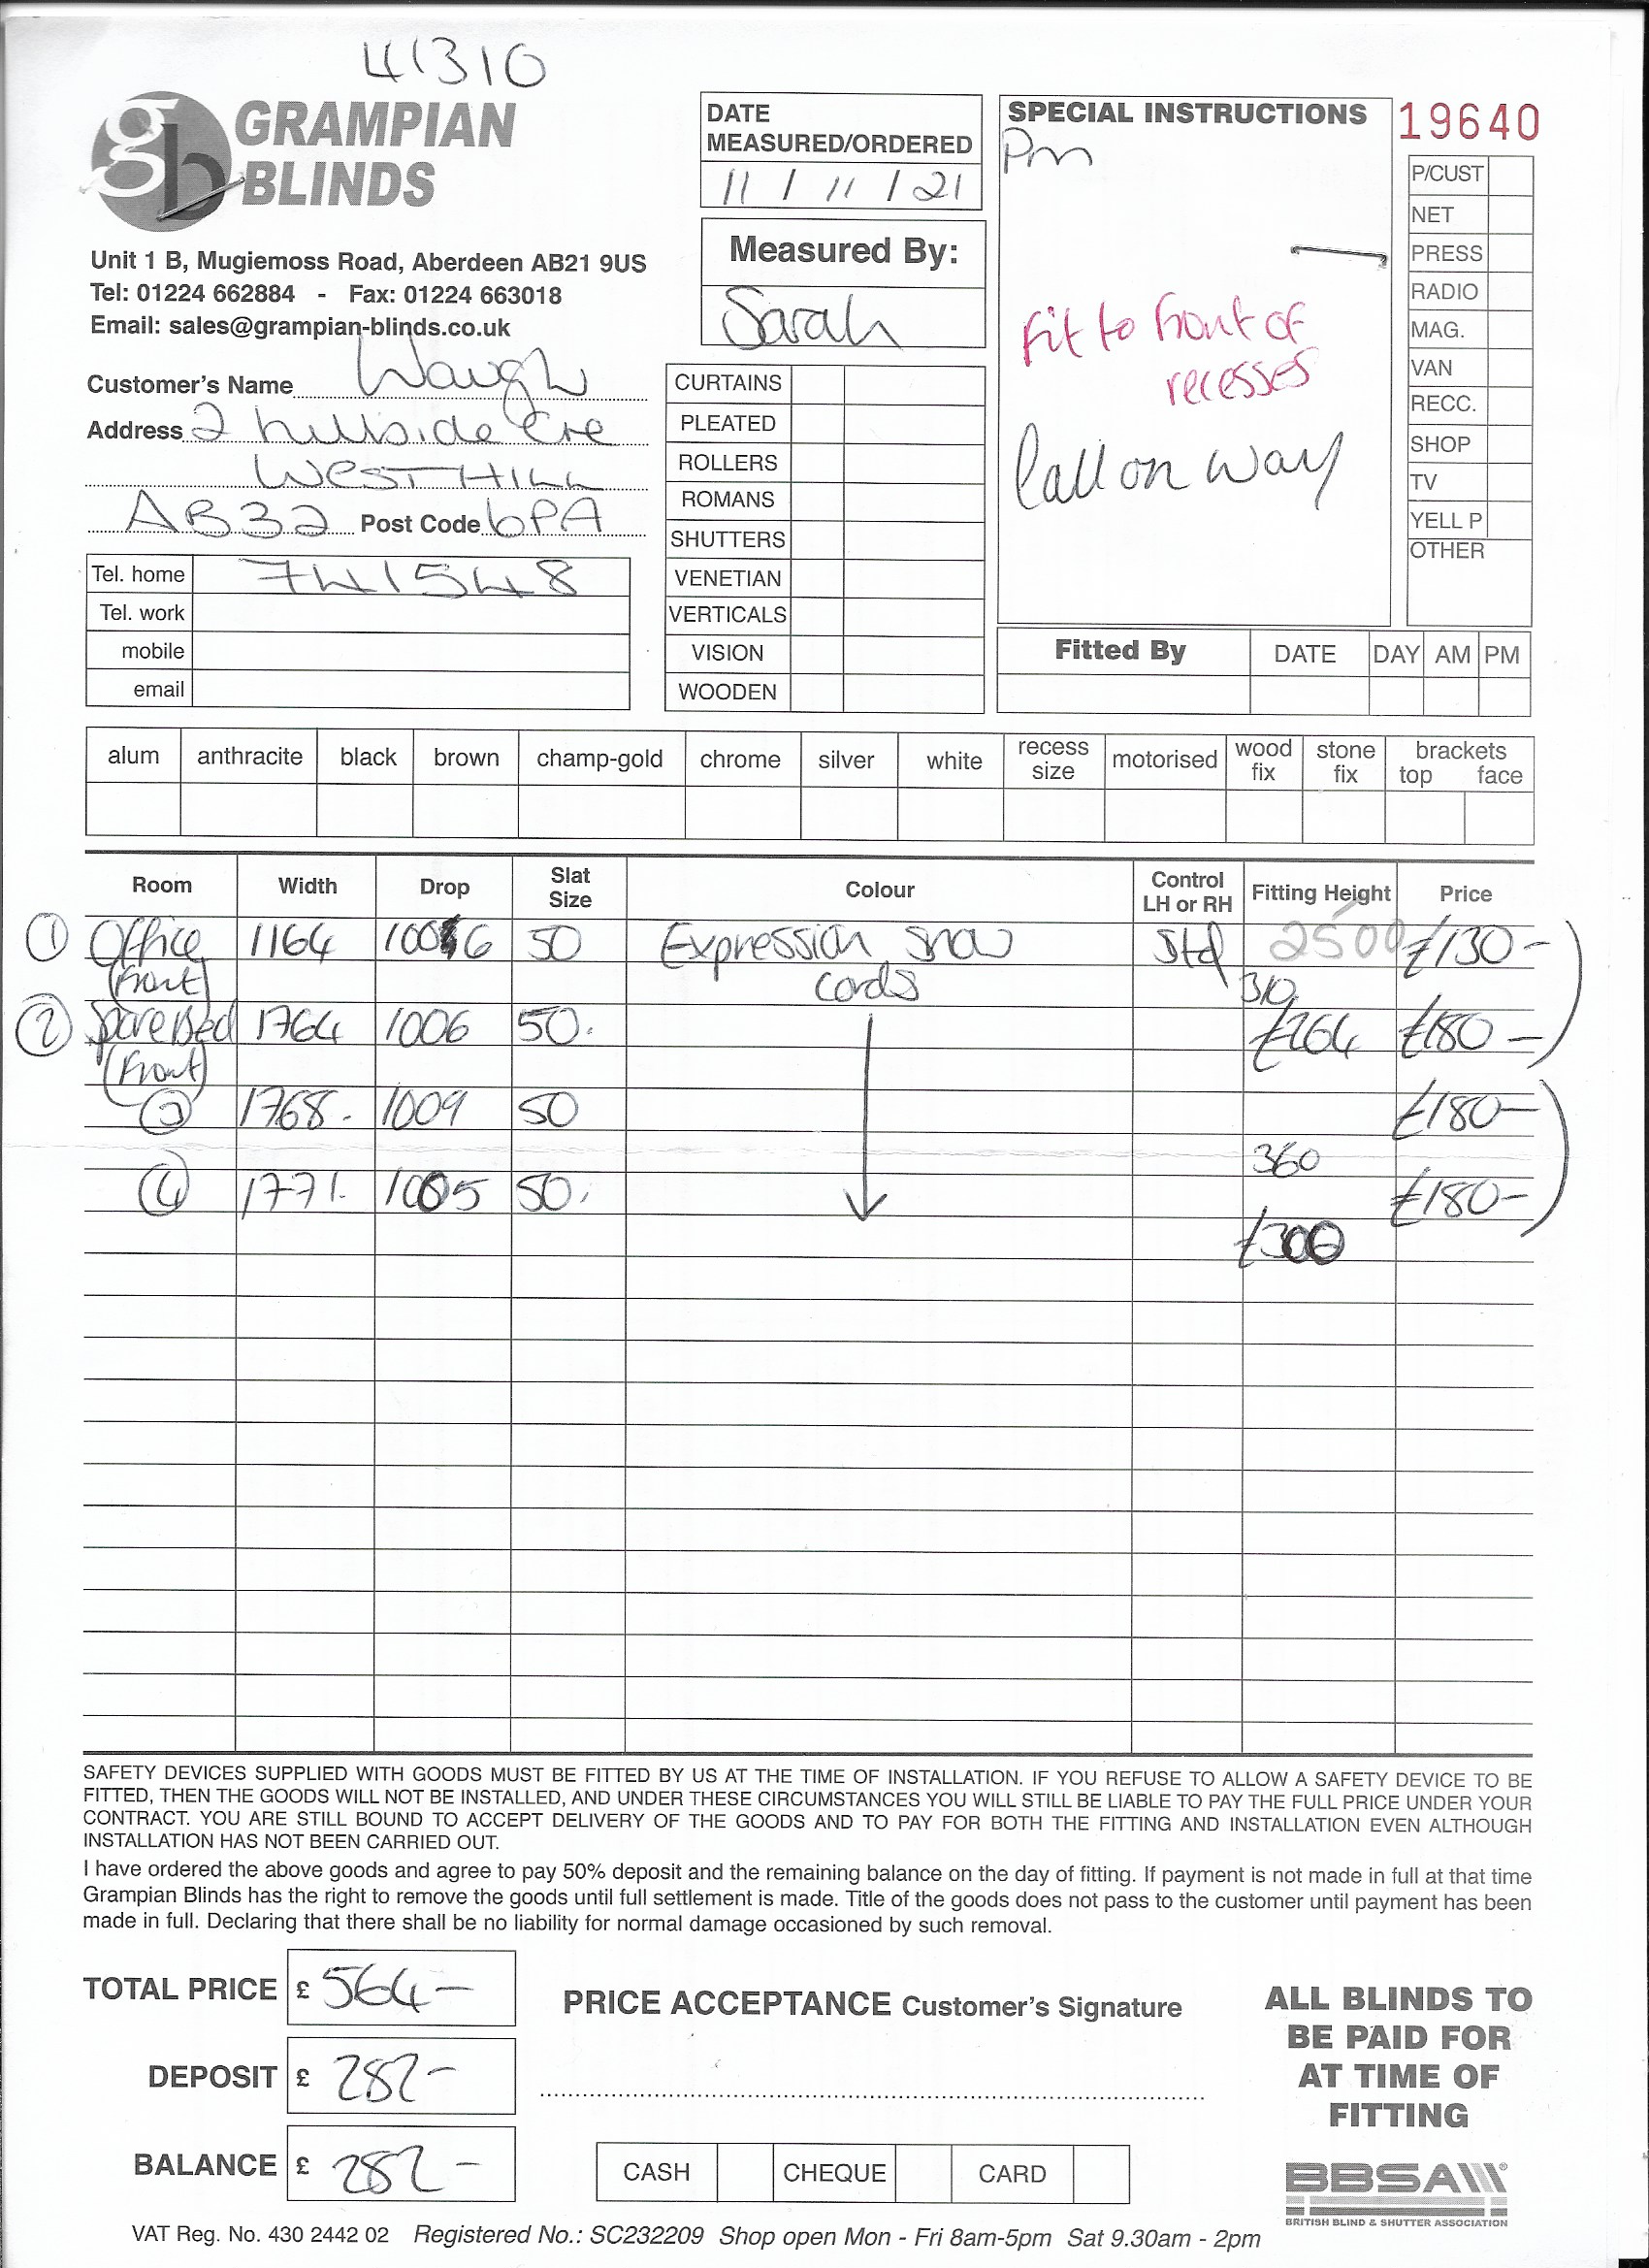 41310
GRAMPIAN
BLINDS
Unit 1 B, Mugiemoss Road, Aberdeen AB21 9US
Tel: 01224 662884 - Fax: 01224 663018
Email: sales@grampian-blinds.co.uk
Customer's Name Waugh
Address 2 hillside Cre
WESTHILL
AB32 Post Code 6PA
Tel. home 741548
Tel. work
mobile
email
DATE
MEASURED/ORDERED
11 / 11 / 21
Measured By:
Sarah
CURTAINS
PLEATED
ROLLERS
ROMANS
SHUTTERS
VENETIAN
VERTICALS
VISION
WOODEN
SPECIAL INSTRUCTIONS
Pm
Fit to front of
recesses
Call on way
19640
P/CUST
NET
PRESS
RADIO
MAG.
VAN
RECC.
SHOP
TV
YELL P
OTHER
Fitted By DATE DAY AM PM
alum anthracite black brown champ-gold chrome silver white recess size motorised wood fix stone fix brackets top face
Room Width Drop Slat Size Colour Control LH or RH Fitting Height Price
① Office 1164 1006 50 Expression snow Std 2500 £130-
(Front) cords 310
② Spare Bed 1764 1006 50. £264 £180-
(Front)
③ 1768. 1009 50 £180-
360
④ 1771. 1005 50. £180-
£300
SAFETY DEVICES SUPPLIED WITH GOODS MUST BE FITTED BY US AT THE TIME OF INSTALLATION. IF YOU REFUSE TO ALLOW A SAFETY DEVICE TO BE
FITTED, THEN THE GOODS WILL NOT BE INSTALLED, AND UNDER THESE CIRCUMSTANCES YOU WILL STILL BE LIABLE TO PAY THE FULL PRICE UNDER YOUR
CONTRACT. YOU ARE STILL BOUND TO ACCEPT DELIVERY OF THE GOODS AND TO PAY FOR BOTH THE FITTING AND INSTALLATION EVEN ALTHOUGH
INSTALLATION HAS NOT BEEN CARRIED OUT.
I have ordered the above goods and agree to pay 50% deposit and the remaining balance on the day of fitting. If payment is not made in full at that time
Grampian Blinds has the right to remove the goods until full settlement is made. Title of the goods does not pass to the customer until payment has been
made in full. Declaring that there shall be no liability for normal damage occasioned by such removal.
TOTAL PRICE £ 564-
DEPOSIT £ 282-
BALANCE £ 282-
PRICE ACCEPTANCE Customer's Signature
CASH CHEQUE CARD
ALL BLINDS TO
BE PAID FOR
AT TIME OF
FITTING
BBSA
BRITISH BLIND & SHUTTER ASSOCIATION
VAT Reg. No. 430 2442 02 Registered No.: SC232209 Shop open Mon - Fri 8am-5pm Sat 9.30am - 2pm